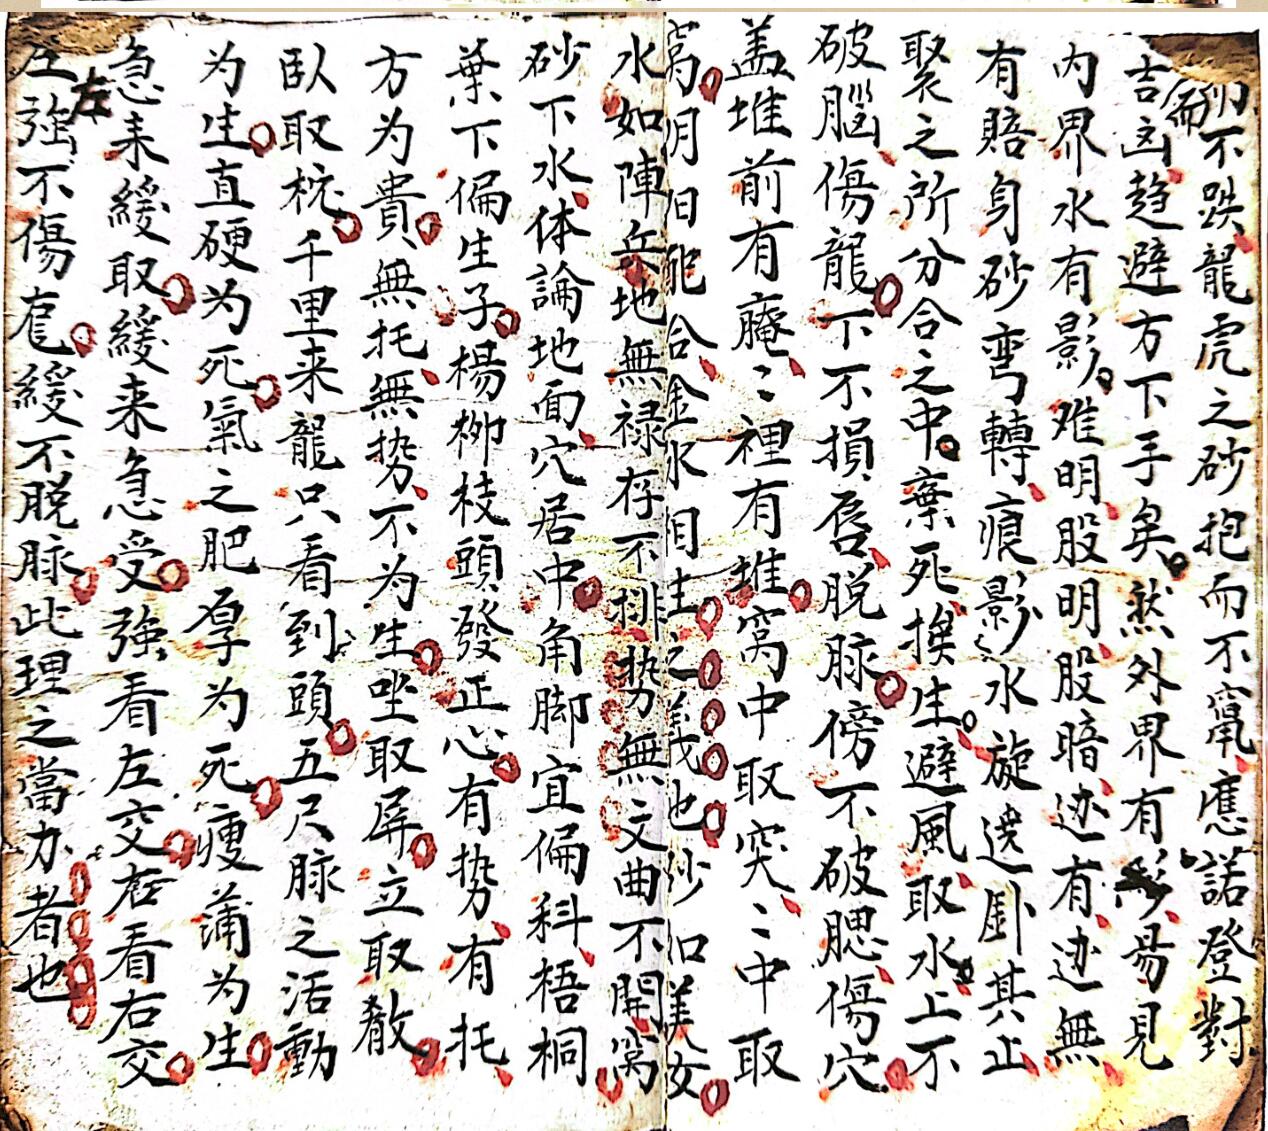 不跌龍虎之砂抱而不竄應諾登對
而
吉凶趋避方下手矣然外界有影易見
内界水有影难明股明股暗迹有迹無
有賠身砂弯轉痕影水旋遶割其止
聚之所分合之中棄死挨生避風取水上不
破腦傷龍下不損唇脱脉傍不破腮傷穴
盖堆前有𦼮〻裡有堆窩中取突〻中取
窩阴阳配合金水相生之義也砂如美女
水如陣兵地無禄存不排势無文曲不開窩
砂下水体論地面穴居中角脚宜偏科梧桐
葉下偏生子楊柳枝頭發正心有势有托
方为貴無托無势不为生坐取屏立取
臥取枕千里来龍只看到頭五尺脉之活動
为生直硬为死氣之肥厚为死瘦薄为生
急来緩取緩来急受強看左交右看右交
左
強不傷緩不脱脉此理之當力者也